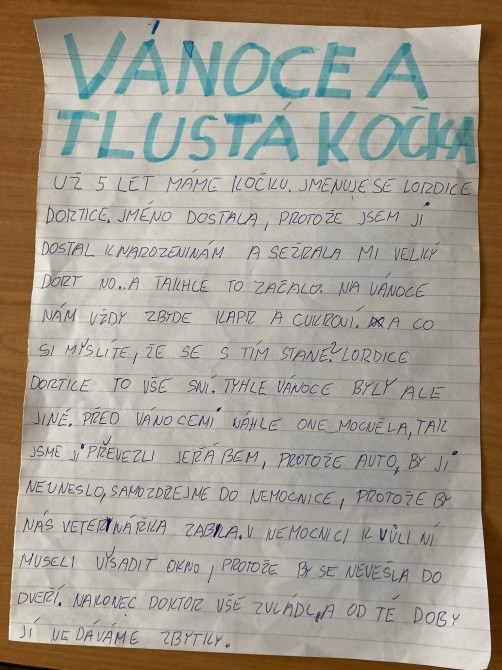 VÁNOCE A
TLUSTÁ KOČKA
UŽ 5 LET MÁME KOČKU. JMENUJE SE LORDICE
DORTICE. JMÉNO DOSTALA, PROTOŽE JSEM JÍ
DOSTAL K NAROZENINÁM A SEŽRALA MI VELKÝ
DORT NO.. A TAKHLE TO ZAČALO. NA VÁNOCE
NÁM VŽDY ZBYDE KAPR A CUKROVÍ. A CO
SI MYSLÍTE, ŽE SE S TÍM STANE? LORDICE
DORTICE TO VŠE SNÍ. TYHLE VÁNOCE BYLY ALE
JINÉ. PŘED VÁNOCEMI NÁHLE ONE MOCNĚLA, TAK
JSME JI PŘEVEZLI JEŘÁBEM, PROTOŽE AUTO, BY JÍ
NEUNESLO, SAMOZDŘEJME DO NEMOCNICE, PROTOŽE BY
NÁS VETERINÁŘKA ZABILA. V NEMOCNICI KVŮLI NÍ
MUSELI VYSADIT OKNO, PROTOŽE BY SE NEVEŠLA DO
DVEŘÍ. NAKONEC DOKTOR VŠE ZVLÁDL, A OD TÉ DOBY
JÍ NEDÁVÁME ZBYTKY.